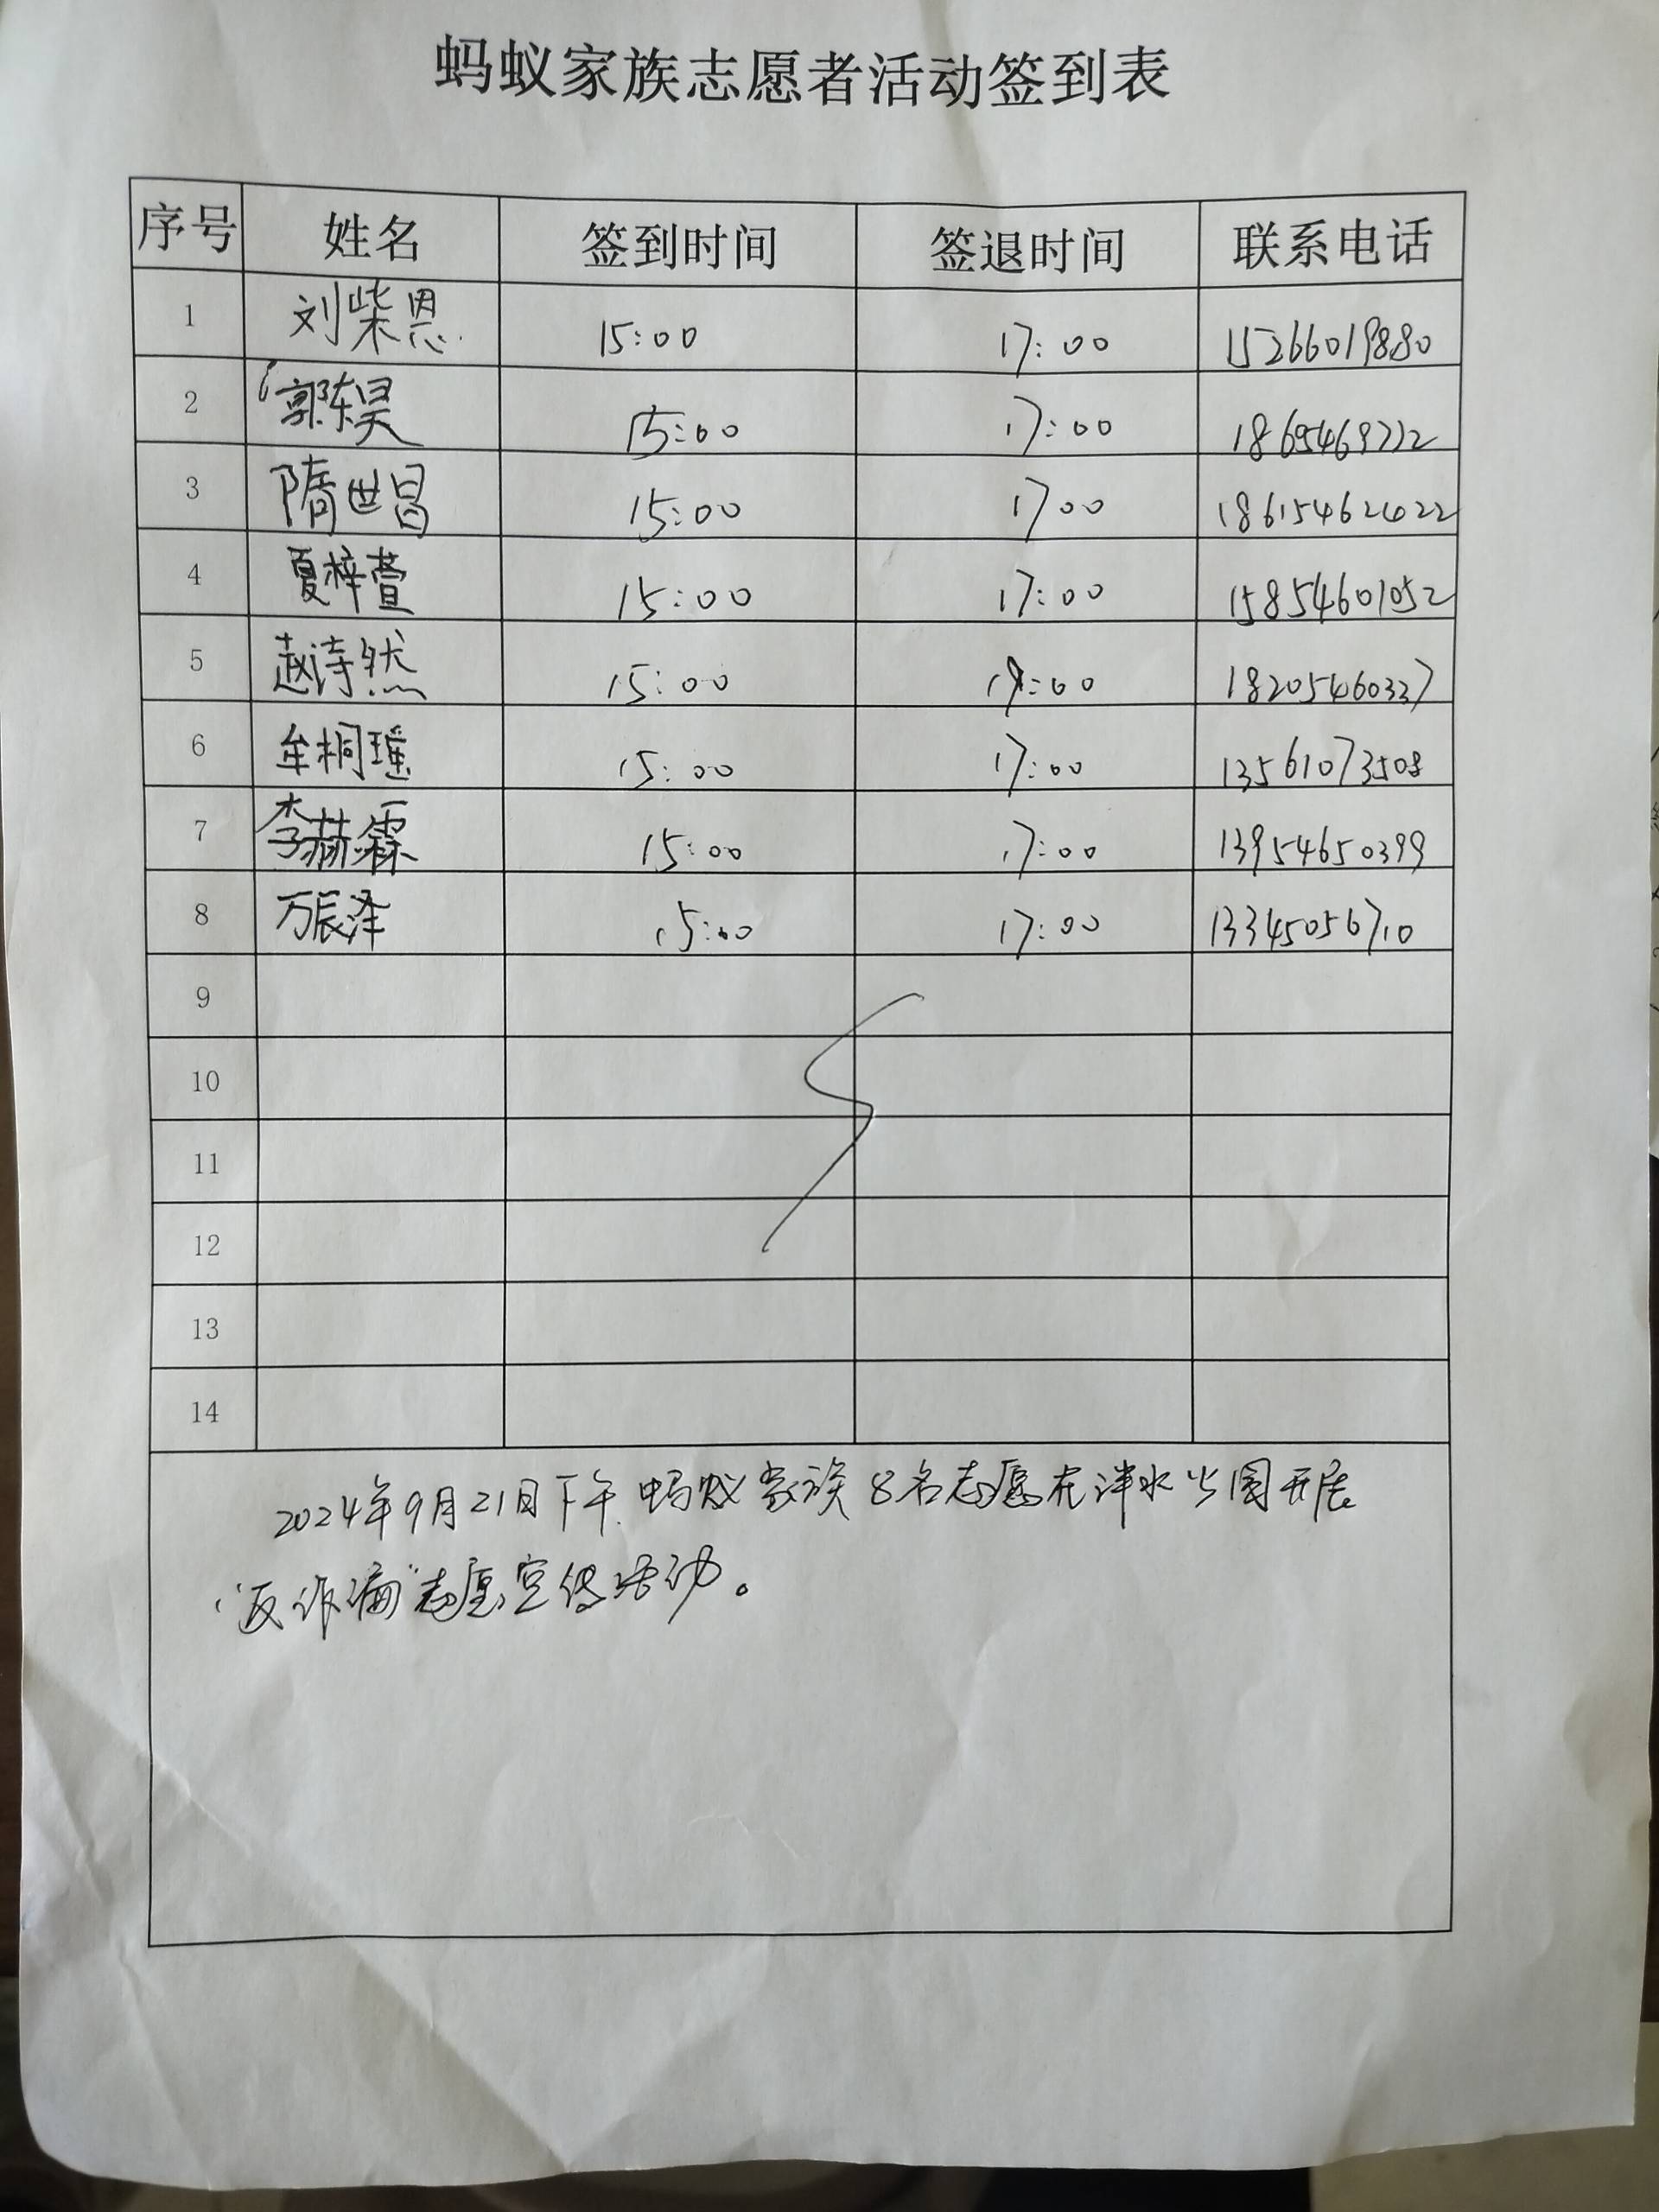 蚂蚁家族志愿者活动签到表
序号 姓名 签到时间 签退时间 联系电话
1 刘柴恩 15:00 17:00 15266019880
2 郭陈昊 15:00 17:00
3 隋世昌 15:00 1700 18615462022
4 夏梓萱 15:00 17:00 15854601052
5 赵诗然 15:00 18205460337
6 牟桐瑶 15:00 17:00 13561073508
7 李赫霖 15:00 17:00 13954650399
8 万辰泽 15:00 17:00 13345056710
9
10
11
12
13
14
2024年9月21日下午蚂蚁家族8名志愿在泮水公园开展
“反诈骗”志愿宣传活动。